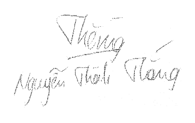 Thắng
Nguyễn Thái Thắng